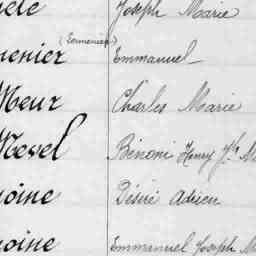 Joseph Marie
(Lemenier)
enier Emmanuel
Meur Charles Marie
Mevel Bénoni Henry Jh M
oine Désiré Adrien
oine Emmanuel Joseph M